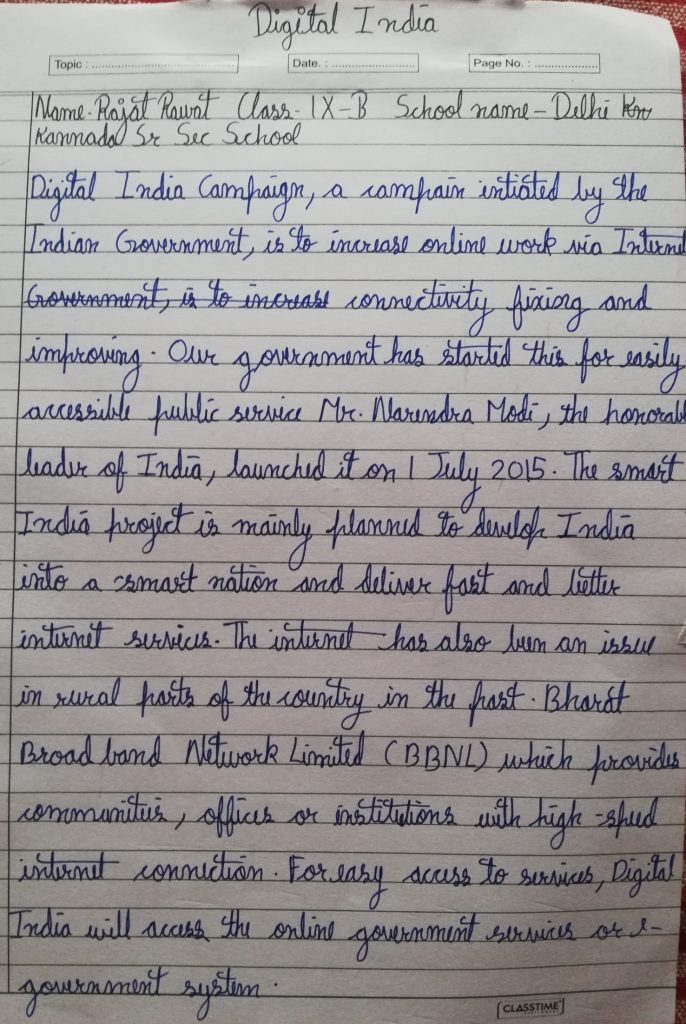 Digital India
Topic : ............................ Date. : ............................ Page No. : ....................
Name- Rajat Rawat Class- IX-B School name - Delhi Kn
Kannada Sr Sec School
Digital India Campaign, a campain intiated by the
Indian Government, is to increase online work via Internet
Government, is to increase connectivity fixing and
improving. Our government has started this for easily
accessible public service Mr. Narendra Modi, the honorabl
leader of India, launched it on 1 July 2015. The smart
India project is mainly planned to develop India
into a smart nation and deliver fast and better
internet services. The internet has also been an issue
in rural parts of the country in the past. Bharat
Broad band Network Limited (BBNL) which provides
communities, offices or institutions with high-speed
internet connection. For easy access to services, Digital
India will access the online government services or e-
government system.
CLASSTIME